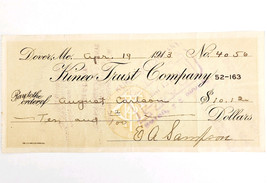 Dover, Me. Apr. 19 1913 No. 4050
Kineo Trust Company 52-163
Pay to the
order of August Carlson $10.12
Ten and Dollars
E A Sampson